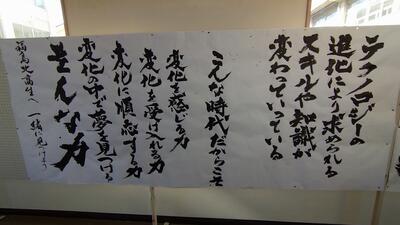 テクノロジーの
進化により求められる
スキルや知識が
変わっていっている
こんな時代だからこそ
変化を感じる力
変化を受け入れる力
変化に順応する力
変化の中で夢を見つける
そんな力
福島北高生へ 一緒に見つけよう